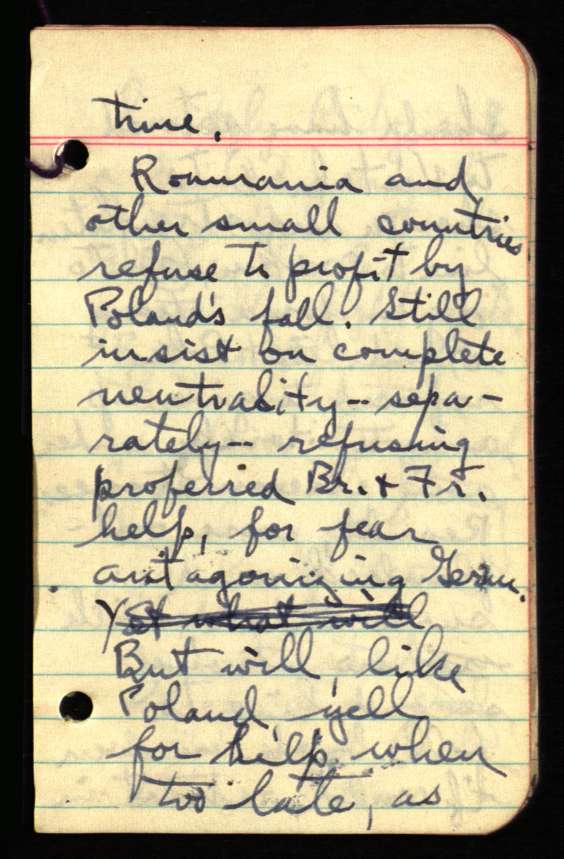 time.
Roumania and
other small countries
refuse to profit by
Poland's fall. Still
insist on complete
neutrality -- sepa-
rately -- refusing
proferred Br. & Fr.
help, for fear
antagonizing Germ.
Yet what will
But will, like
Poland, yell
for help when
too late, as